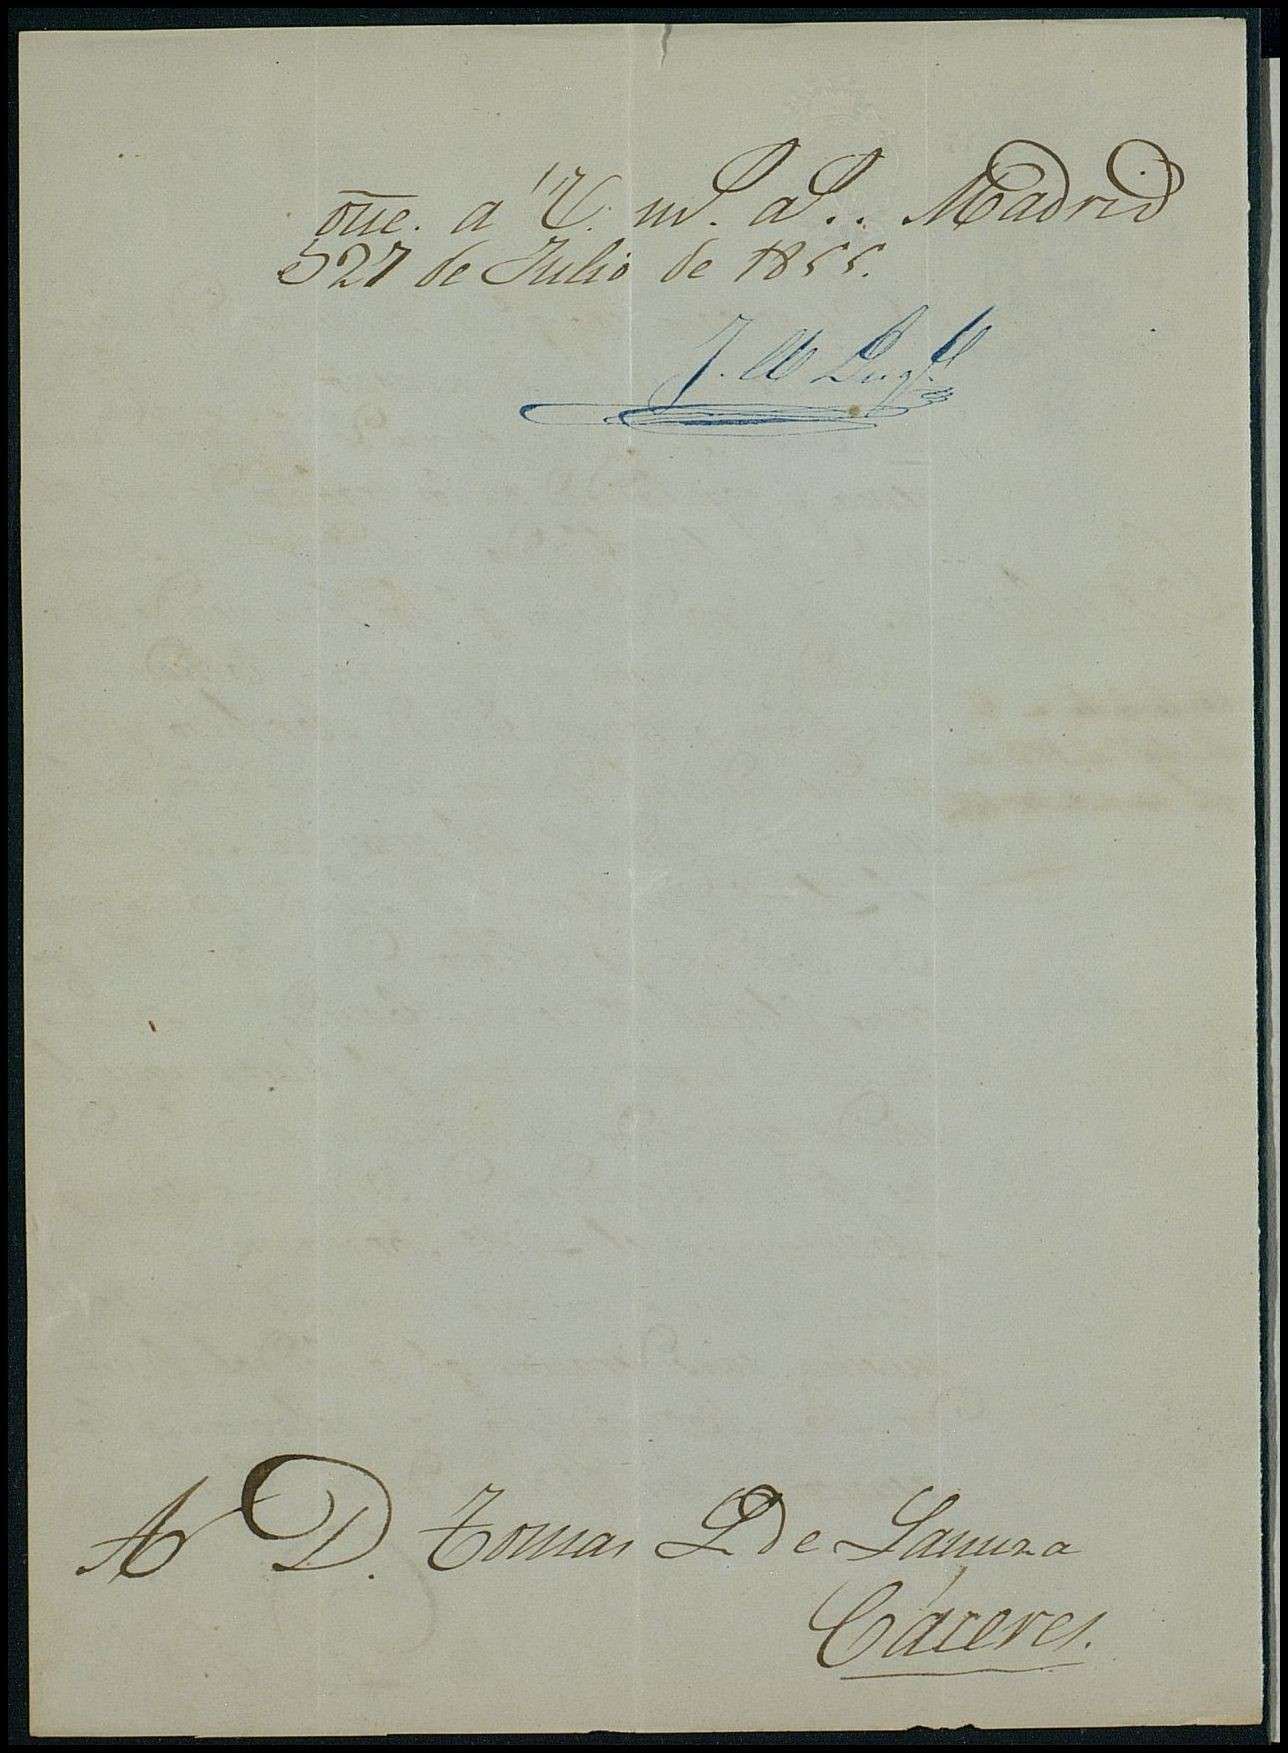 que. á V. m. a. Madrid
27 de Julio de 1855.
A D. Tomas L de Sanuza
Cáceres.